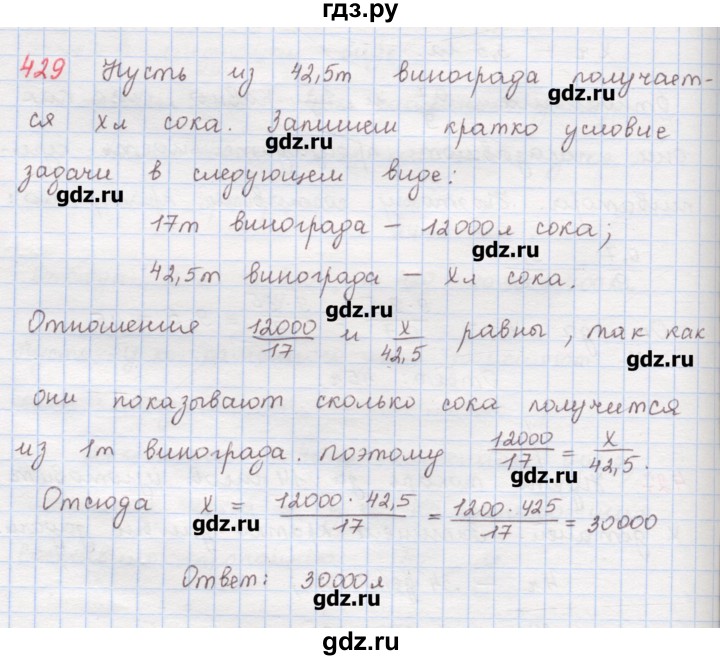 гдз.ру
429 Пусть из 42,5т винограда получает-
gdz.ru
ся хл сока. Запишем кратко условие
gdz.ru
задачи в следующем виде:
gdz.ru
17т винограда – 12000л сока;
gdz.ru
42,5т винограда – хл сока.
gdz.ru
Отношения 12000/17 и х/42,5 равны, так как
gdz.ru
они показывают сколько сока получится
из 1т винограда. Поэтому 12000/17 = х/42,5.
gdz.ru
Отсюда х = 12000 · 42,5/17 = 1200 · 425/17 = 30000
gdz.ru
Ответ: 30000л
gdz.ru
gdz.ru